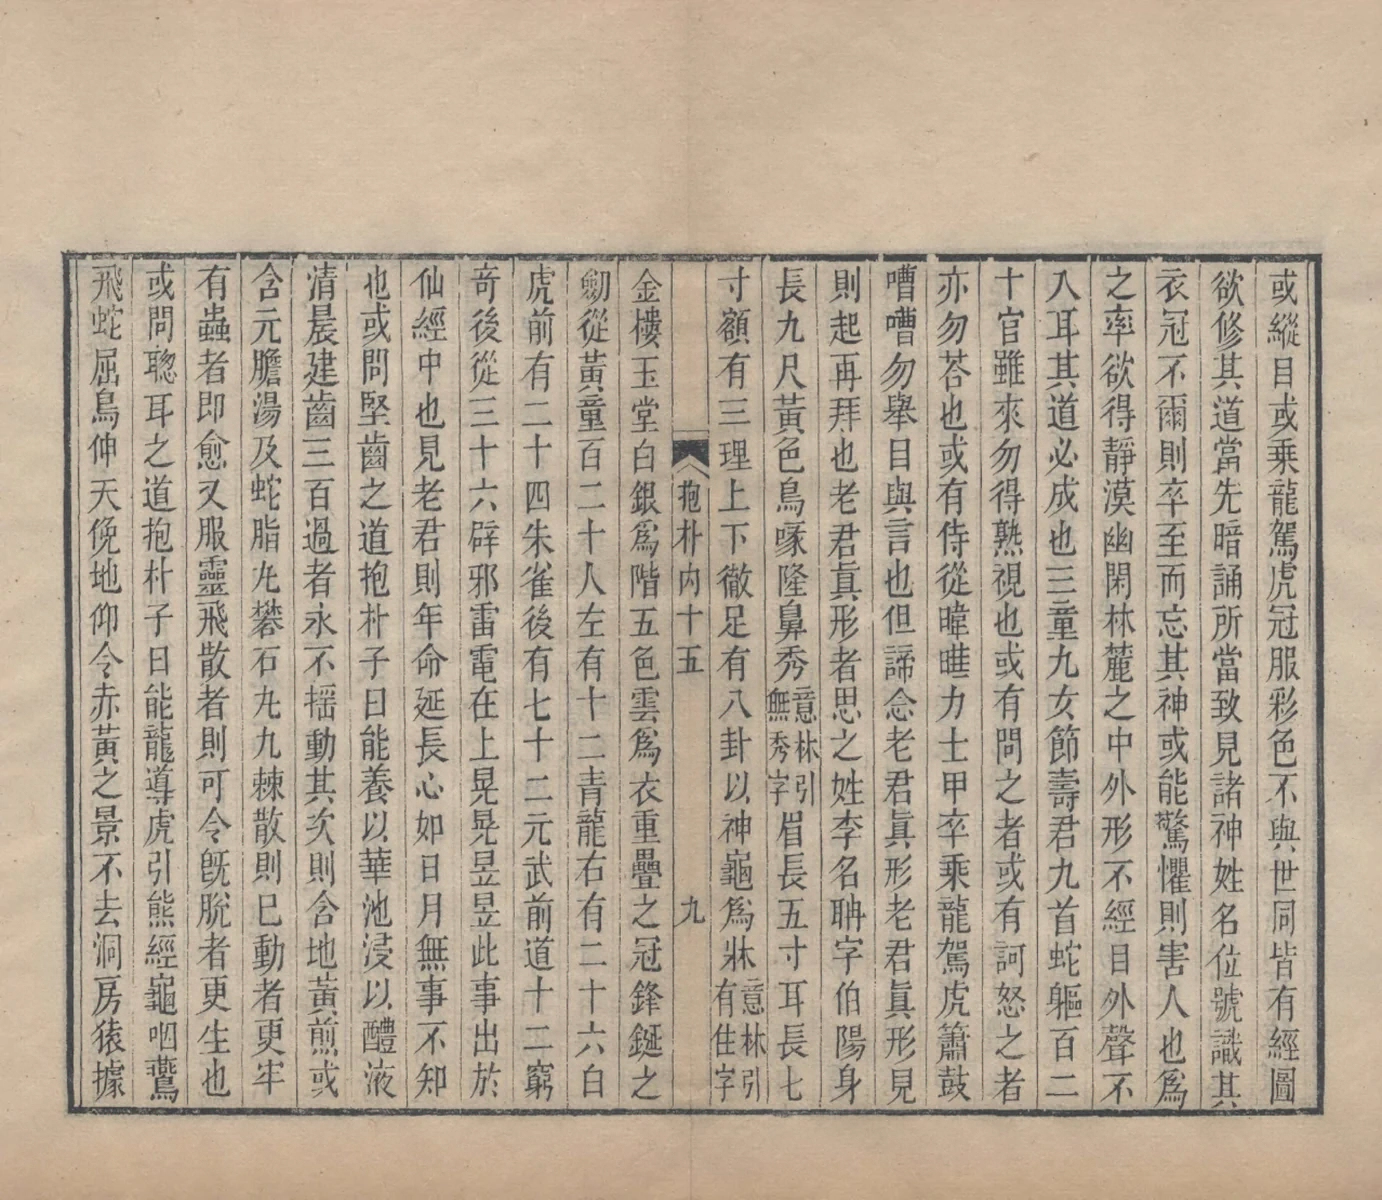 或縱目或乘龍駕虎冠服彩色不與世同皆有經圖
欲修其道當先暗誦所當致見諸神姓名位號識其
衣冠不爾則卒至而忘其神或能驚懼則害人也爲
之率欲得靜漠幽閑林麓之中外形不經目外聲不
入耳其道必成也三童九女節壽君九首蛇軀百二
十官雖來勿得熟視也或有問之者或有訶怒之者
亦勿荅也或有侍從暐曄力士甲卒乘龍駕虎簫鼓
嘈嘈勿舉目與言也但諦念老君眞形老君眞形見
則起再拜也老君眞形者思之姓李名聃字伯陽身
長九尺黃色鳥喙隆鼻秀意林引無秀字眉長五寸耳長七
寸額有三理上下徹足有八卦以神龜爲牀意林引有住字
抱朴內十五 九
金樓玉堂白銀爲階五色雲爲衣重疊之冠鋒鋋之
劒從黃童百二十人左有十二青龍右有二十六白
虎前有二十四朱雀後有七十二元武前道十二窮
奇後從三十六辟邪雷電在上晃晃昱昱此事出於
仙經中也見老君則年命延長心如日月無事不知
也或問堅齒之道抱朴子曰能養以華池浸以醴液
清晨建齒三百過者永不搖動其次則含地黃煎或
含元膽湯及蛇脂丸礬石丸九棘散則已動者更牢
有蟲者即愈又服靈飛散者則可令旣脫者更生也
或問聰耳之道抱朴子曰能龍導虎引熊經龜咽鷰
飛蛇屈鳥伸天俛地仰令赤黃之景不去洞房猿據